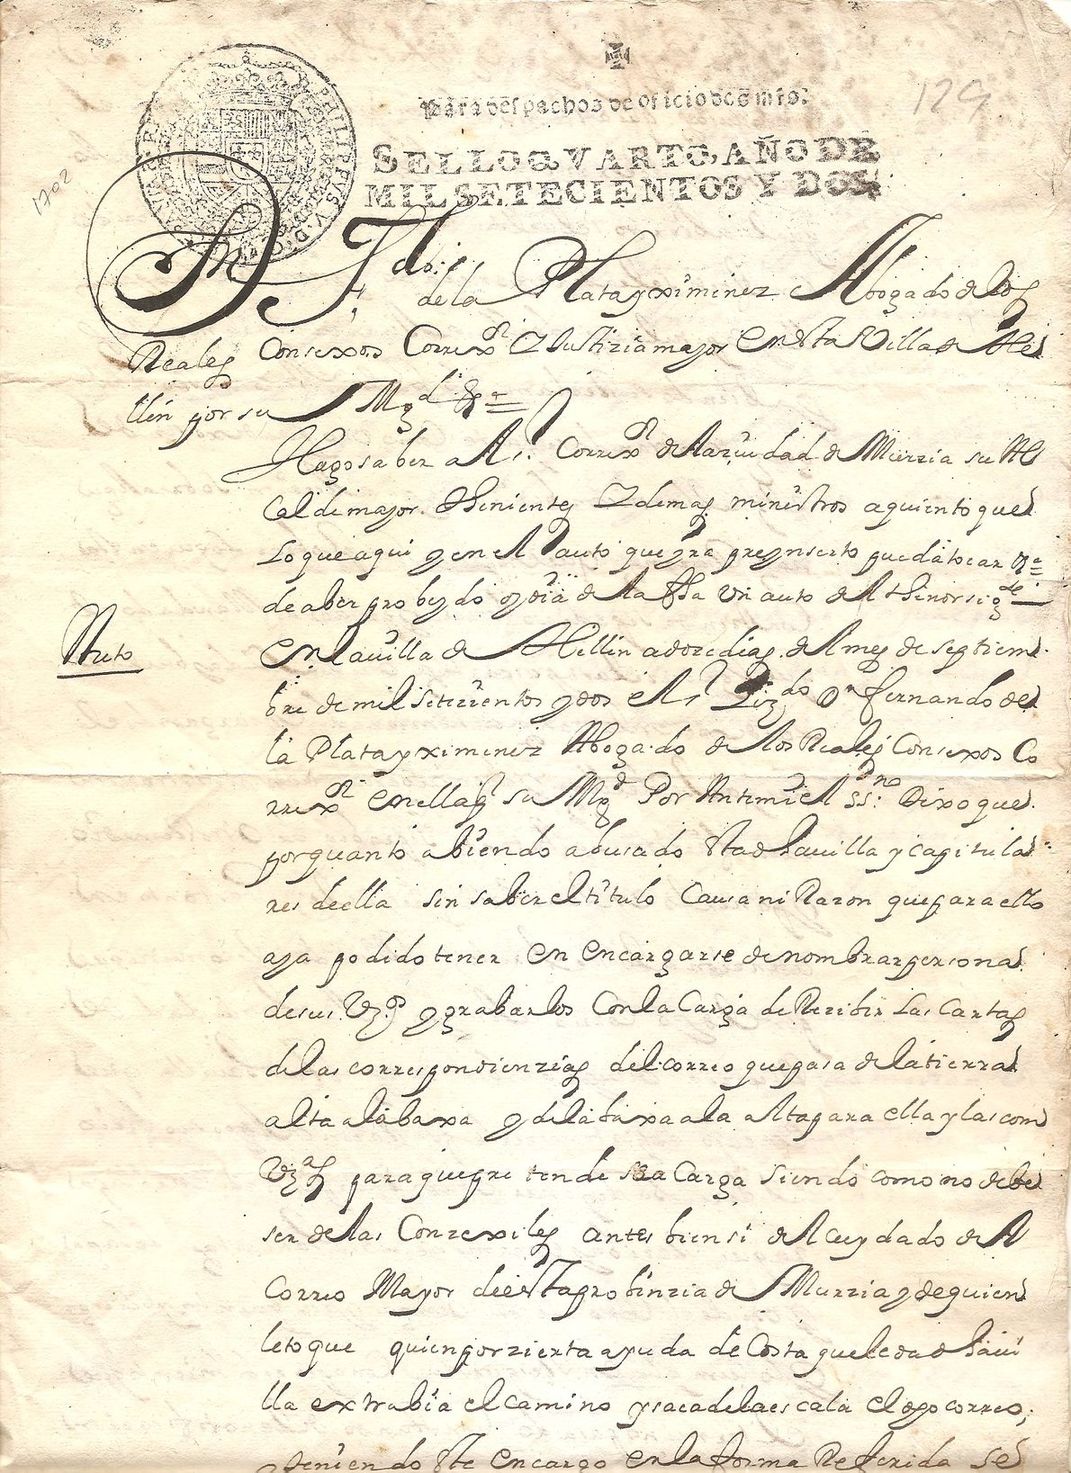 Para despachos de oficio dos mrs.
129
SELLO QVARTO, AÑO DE
MIL SETECIENTOS Y DOS
PHILIPPVS V D G
1702
de la Plata y ximinez Abogado de los
Reales Consexos Correxor Y Justizia mayor En esta Villa de He
llin por su Mgd &a
Hago saber al sr. Correxor de la ziudad de Murzia su Al
calde mayor theniente Y demas ministros a quien to que
Lo que aqui y en el auto que yra preynserto pueda tocar
de aber probeydo oy dia de la fha Un auto del thenor sigte
Auto
En la uilla de Hellin a doze dias del mes de septiem
bre de mil setezientos y dos el sr Lizdo Dn fernando de
la Plata y ximinez Abogado de los Reales Consexos Co
rrexor en ella por su Mgd Por Antemi el ssno Dixo que
por quanto abiendo abusado esta dha uilla y capitula
res de ella sin saber el titulo Causa ni Razon que para ello
aya podido tener en encargarse de nombrar persona
de sus Vzos y grabarlos Con la Carga de Rezibir Las Cartas
de las correspondienzias del correo que pasa de la tierra
alta a la baxa y de la baxa a la alta para ella y las com
Vzas para que pretende sea Carga siendo como no debe
ser de las Conzexiles antes bien si del cuydado del
Correo Mayor de esta probinzia de Murzia y de quien
le toque quien por zierta ayuda de Costa que le da dha ui
lla extrabia el camino y saca de la escala el dho correo,
teniendo este encargo en la forma Referida se